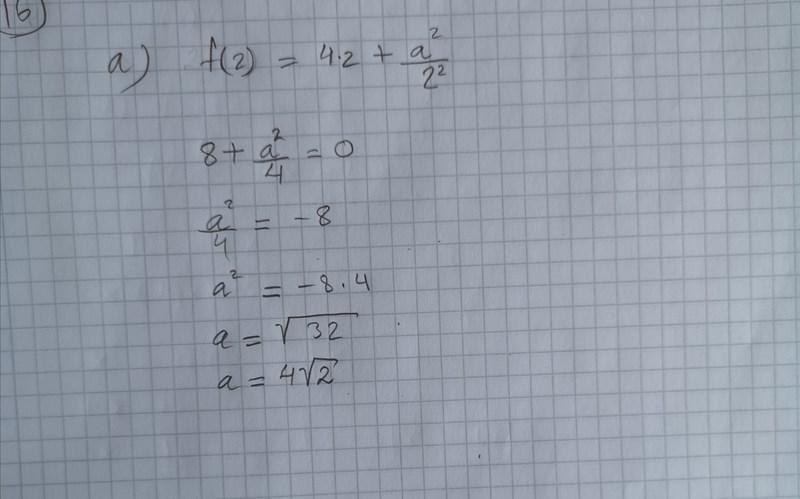 16
a) f(2) = 4·2 + a²/2²
8 + a²/4 = 0
a²/4 = -8
a² = -8·4
a = √32
a = 4√2